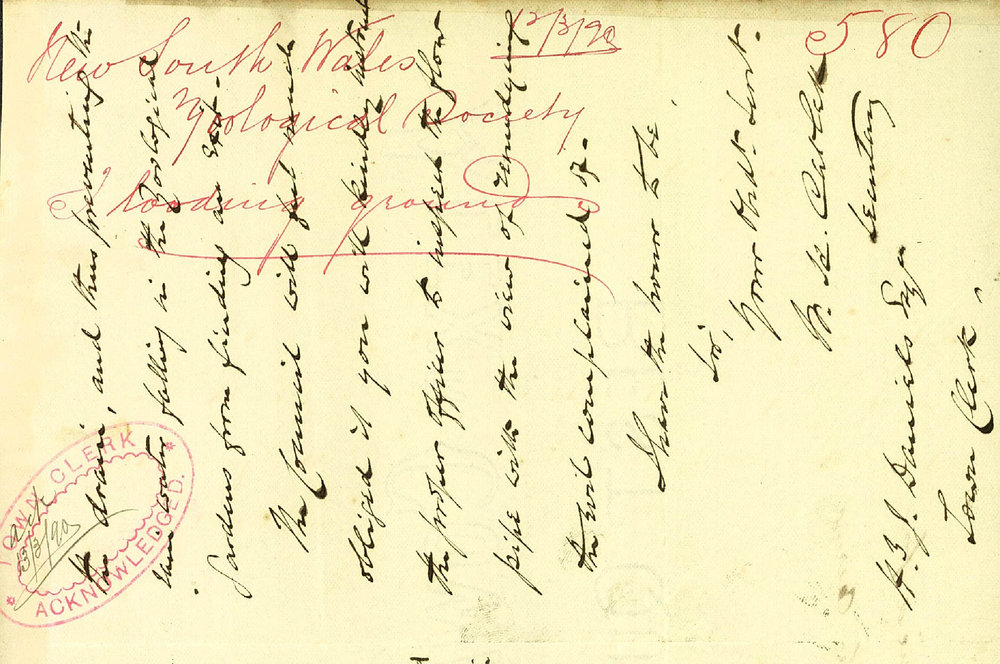 580
12/3/90
New South Wales
Zoological Society
Flooding ground
the drain, and thus preventing the
rain water falling in the Zoological
Gardens from finding an exit.
The Council will feel much
obliged if you will kindly instruct
the proper officer to inspect the flow
pipe with the view of remedying
the evil complained of.
I have the honor to be
Sir,
Your Obdt. Servt.
Secretary
H. J. Daniels Esqr
Town Clerk.
TOWN CLERK
Ack
13/3/90
ACKNOWLEDGED.